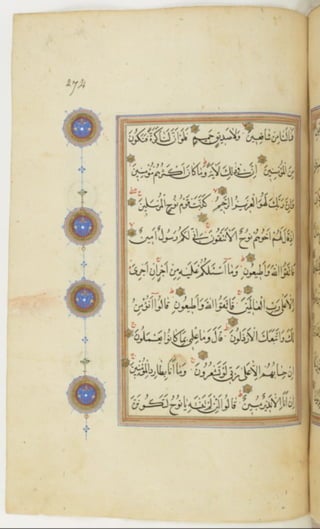 274
فَمَا لَنَا مِنْ شَافِعِينَ وَلَا صَدِيقٍ حَمِيمٍ فَلَوْ أَنَّ لَنَا كَرَّةً فَنَكُونَ
مِنَ الْمُؤْمِنِينَ إِنَّ فِي ذَلِكَ لَآيَةً وَمَا كَانَ أَكْثَرُهُمْ مُؤْمِنِينَ
وَإِنَّ رَبَّكَ لَهُوَ الْعَزِيزُ الرَّحِيمُ كَذَّبَتْ قَوْمُ نُوحٍ الْمُرْسَلِينَ
إِذْ قَالَ لَهُمْ أَخُوهُمْ نُوحٌ أَلَا تَتَّقُونَ إِنِّي لَكُمْ رَسُولٌ أَمِينٌ
فَاتَّقُوا اللَّهَ وَأَطِيعُونِ وَمَا أَسْئَلُكُمْ عَلَيْهِ مِنْ أَجْرٍ إِنْ أَجْرِيَ
إِلَّا عَلَى رَبِّ الْعَالَمِينَ فَاتَّقُوا اللَّهَ وَأَطِيعُونِ قَالُوا أَنُؤْمِنُ
لَكَ وَاتَّبَعَكَ الْأَرْذَلُونَ قَالَ وَمَا عِلْمِي بِمَا كَانُوا يَعْمَلُونَ
إِنْ حِسَابُهُمْ إِلَّا عَلَى رَبِّي لَوْ تَشْعُرُونَ وَمَا أَنَا بِطَارِدِ الْمُؤْمِنِينَ
إِنْ أَنَا إِلَّا نَذِيرٌ مُبِينٌ قَالُوا لَئِنْ لَمْ تَنْتَهِ يَا نُوحُ لَتَكُونَنَّ